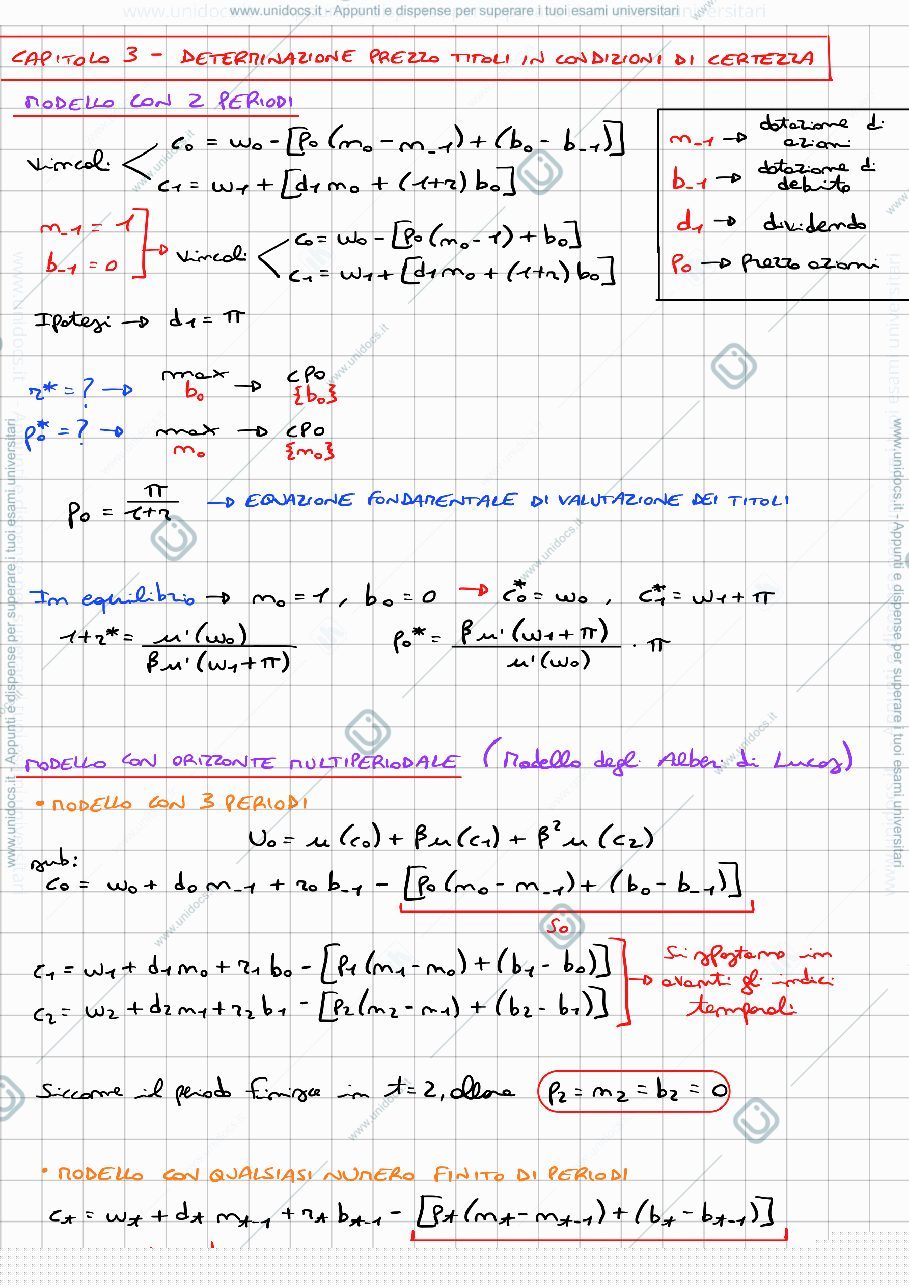 www.unidocs.it - Appunti e dispense per superare i tuoi esami universitari
CAPITOLO 3 - DETERMINAZIONE PREZZO TITOLI IN CONDIZIONI DI CERTEZZA
MODELLO CON 2 PERIODI
Vincoli
c₀ = w₀ - [p₀ (m₀ - m₋₁) + (b₀ - b₋₁)]
c₁ = w₁ + [d₁ m₀ + (1+r) b₀]
m₋₁ → dotazione di azioni
b₋₁ → dotazione di debito
d₁ → dividendo
p₀ → Prezzo azioni
m₋₁ = 1
b₋₁ = 0
→ Vincoli
c₀ = w₀ - [p₀ (m₀ - 1) + b₀]
c₁ = w₁ + [d₁ m₀ + (1+r) b₀]
Ipotesi → d₁ = π
r* = ? → max b₀ → CPO {b₀}
p₀* = ? → max m₀ → CPO {m₀}
p₀ = π / (1+r) → EQUAZIONE FONDAMENTALE DI VALUTAZIONE DEI TITOLI
In equilibrio → m₀ = 1, b₀ = 0 → c₀* = w₀, c₁* = w₁ + π
1+r* = u'(w₀) / βu'(w₁+π)    p₀* = βu'(w₁+π) / u'(w₀) · π
MODELLO CON ORIZZONTE MULTIPERIODALE (Modello degli Alberi di Lucas)
• MODELLO CON 3 PERIODI
U₀ = u(c₀) + βu(c₁) + β²u(c₂)
sub:
c₀ = w₀ + d₀ m₋₁ + r₀ b₋₁ - [p₀ (m₀ - m₋₁) + (b₀ - b₋₁)]
S₀
c₁ = w₁ + d₁ m₀ + r₁ b₀ - [p₁ (m₁ - m₀) + (b₁ - b₀)]
c₂ = w₂ + d₂ m₁ + r₂ b₁ - [p₂ (m₂ - m₁) + (b₂ - b₁)]
→ Si spostano in
avanti gli indici
temporali
Siccome il periodo finisce in t=2, allora p₂ = m₂ = b₂ = 0
• MODELLO CON QUALSIASI NUMERO FINITO DI PERIODI
cₜ = wₜ + dₜ mₜ₋₁ + rₜ bₜ₋₁ - [pₜ (mₜ - mₜ₋₁) + (bₜ - bₜ₋₁)]
www.unidocs.it - Appunti e dispense per superare i tuoi esami universitari
www.unidocs.it - Appunti e dispense per superare i tuoi esami universitari